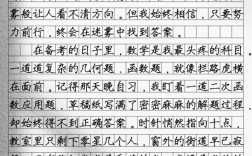 雾般让人看不清方向。但我始终相信，只要努
力前行，终会在迷雾中找到答案。
在备考的日子里，数学是我最头疼的科目。
一道道复杂的几何题、函数题，就像拦路虎横
在面前。记得那天晚自习，我盯着一道二次函
数应用题，草稿纸写满了密密麻麻的解题过程，
却始终得不到正确答案。时针悄然指向十点，
教室里只剩下零星几个人，窗外的街道早已寂